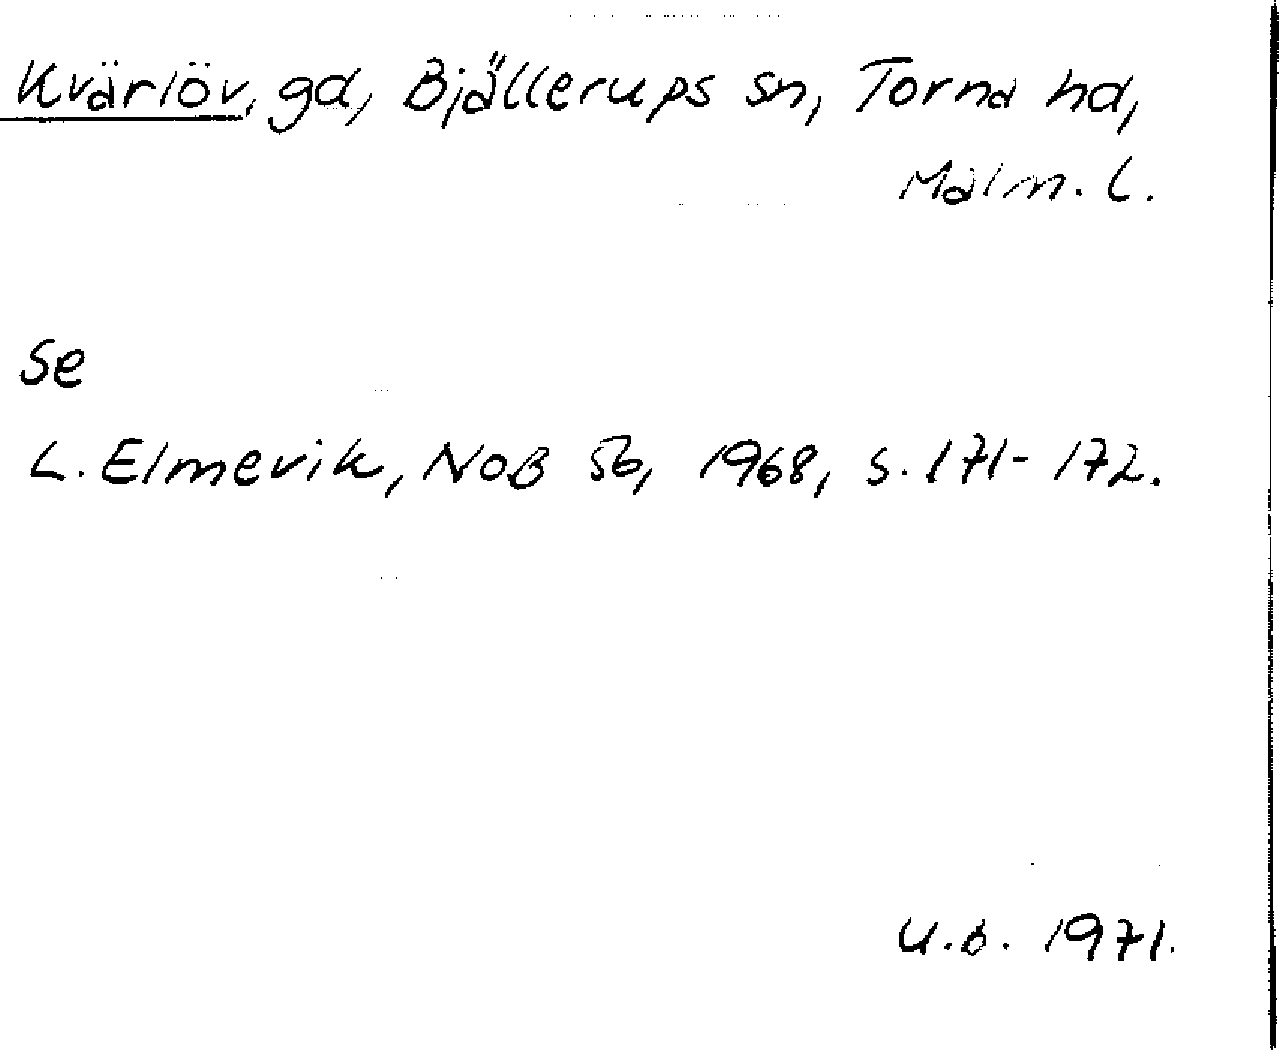 Kvärlöv, gd, Bjällerups sn, Torna hd,
Malm. l.
Se
L. Elmevik, NoB 56, 1968, s. 171-172.
U.b. 1971.